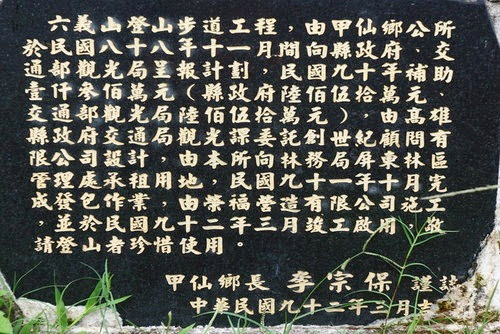 六義山登山步道工程，由甲仙鄉公所
於民國八十八年十一月間向縣政府、交
通部觀光局呈報計劃，民國九十年補助
壹仟參佰萬元（縣政府陸佰伍拾萬元、
交通部觀光局陸佰伍拾萬元），高雄
縣政府觀光課委託創世紀顧問有
限公司設計，本所向林務局屏東林區
管理處承租用地，民國九十一年十月完
成發包作業，由榮福營造有限公司施工
，並於民國九十二年三月竣工啟用，敬
請登山者珍惜使用。
甲仙鄉長 李宗保 謹誌
中華民國九十二年三月吉